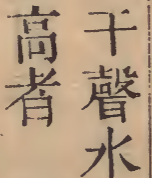 干聲水
高者